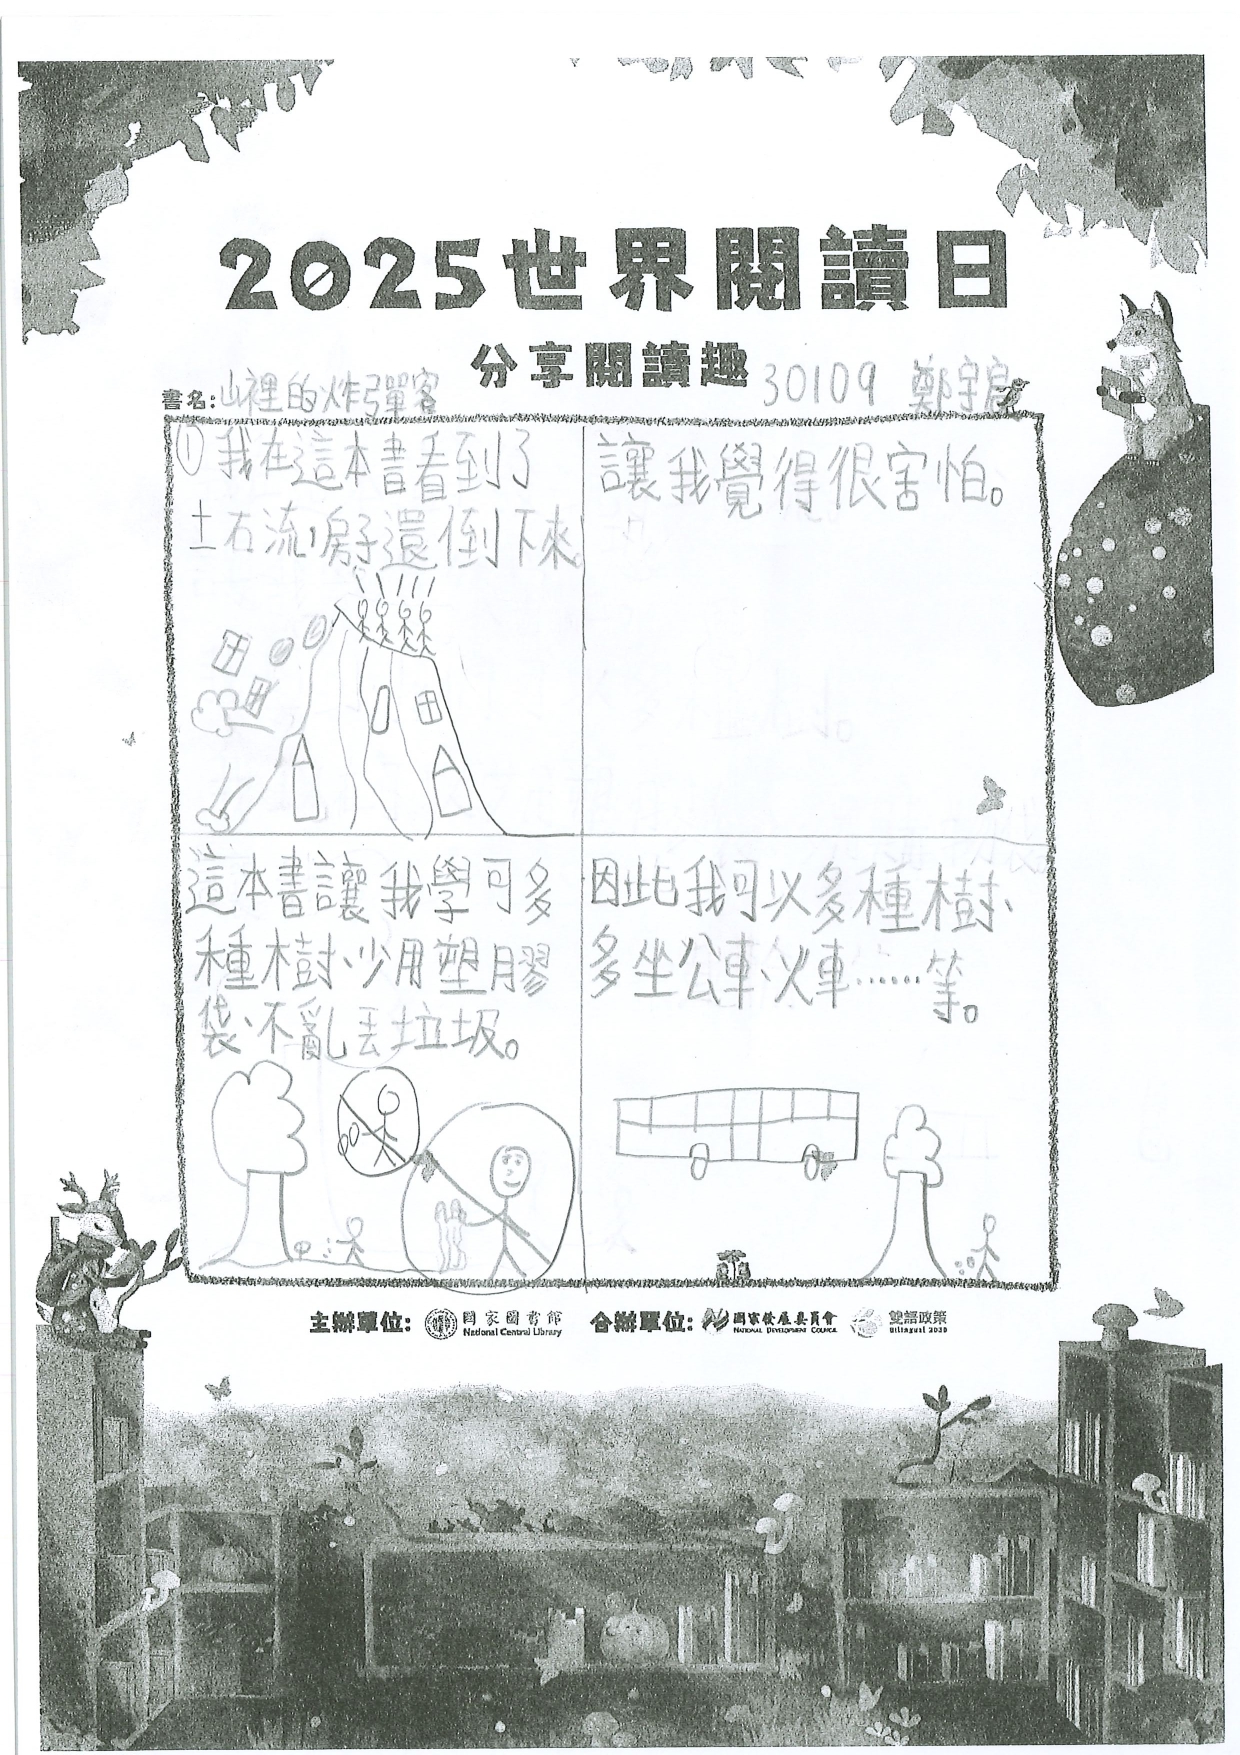 2025世界閱讀日
分享閱讀趣
書名:山裡的炸彈客
30109 鄭宇宸
①我在這本書看到了
土石流,房子還倒下來。
讓我覺得很害怕。
這本書讓我學可多
種樹、少用塑膠
袋、不亂丟垃圾。
因此我可以多種樹、
多坐公車、火車……等。
主辦單位: 國家圖書館 National Central Library 合辦單位: 國家發展委員會 NATIONAL DEVELOPMENT COUNCIL 雙語政策 Bilingual 2030